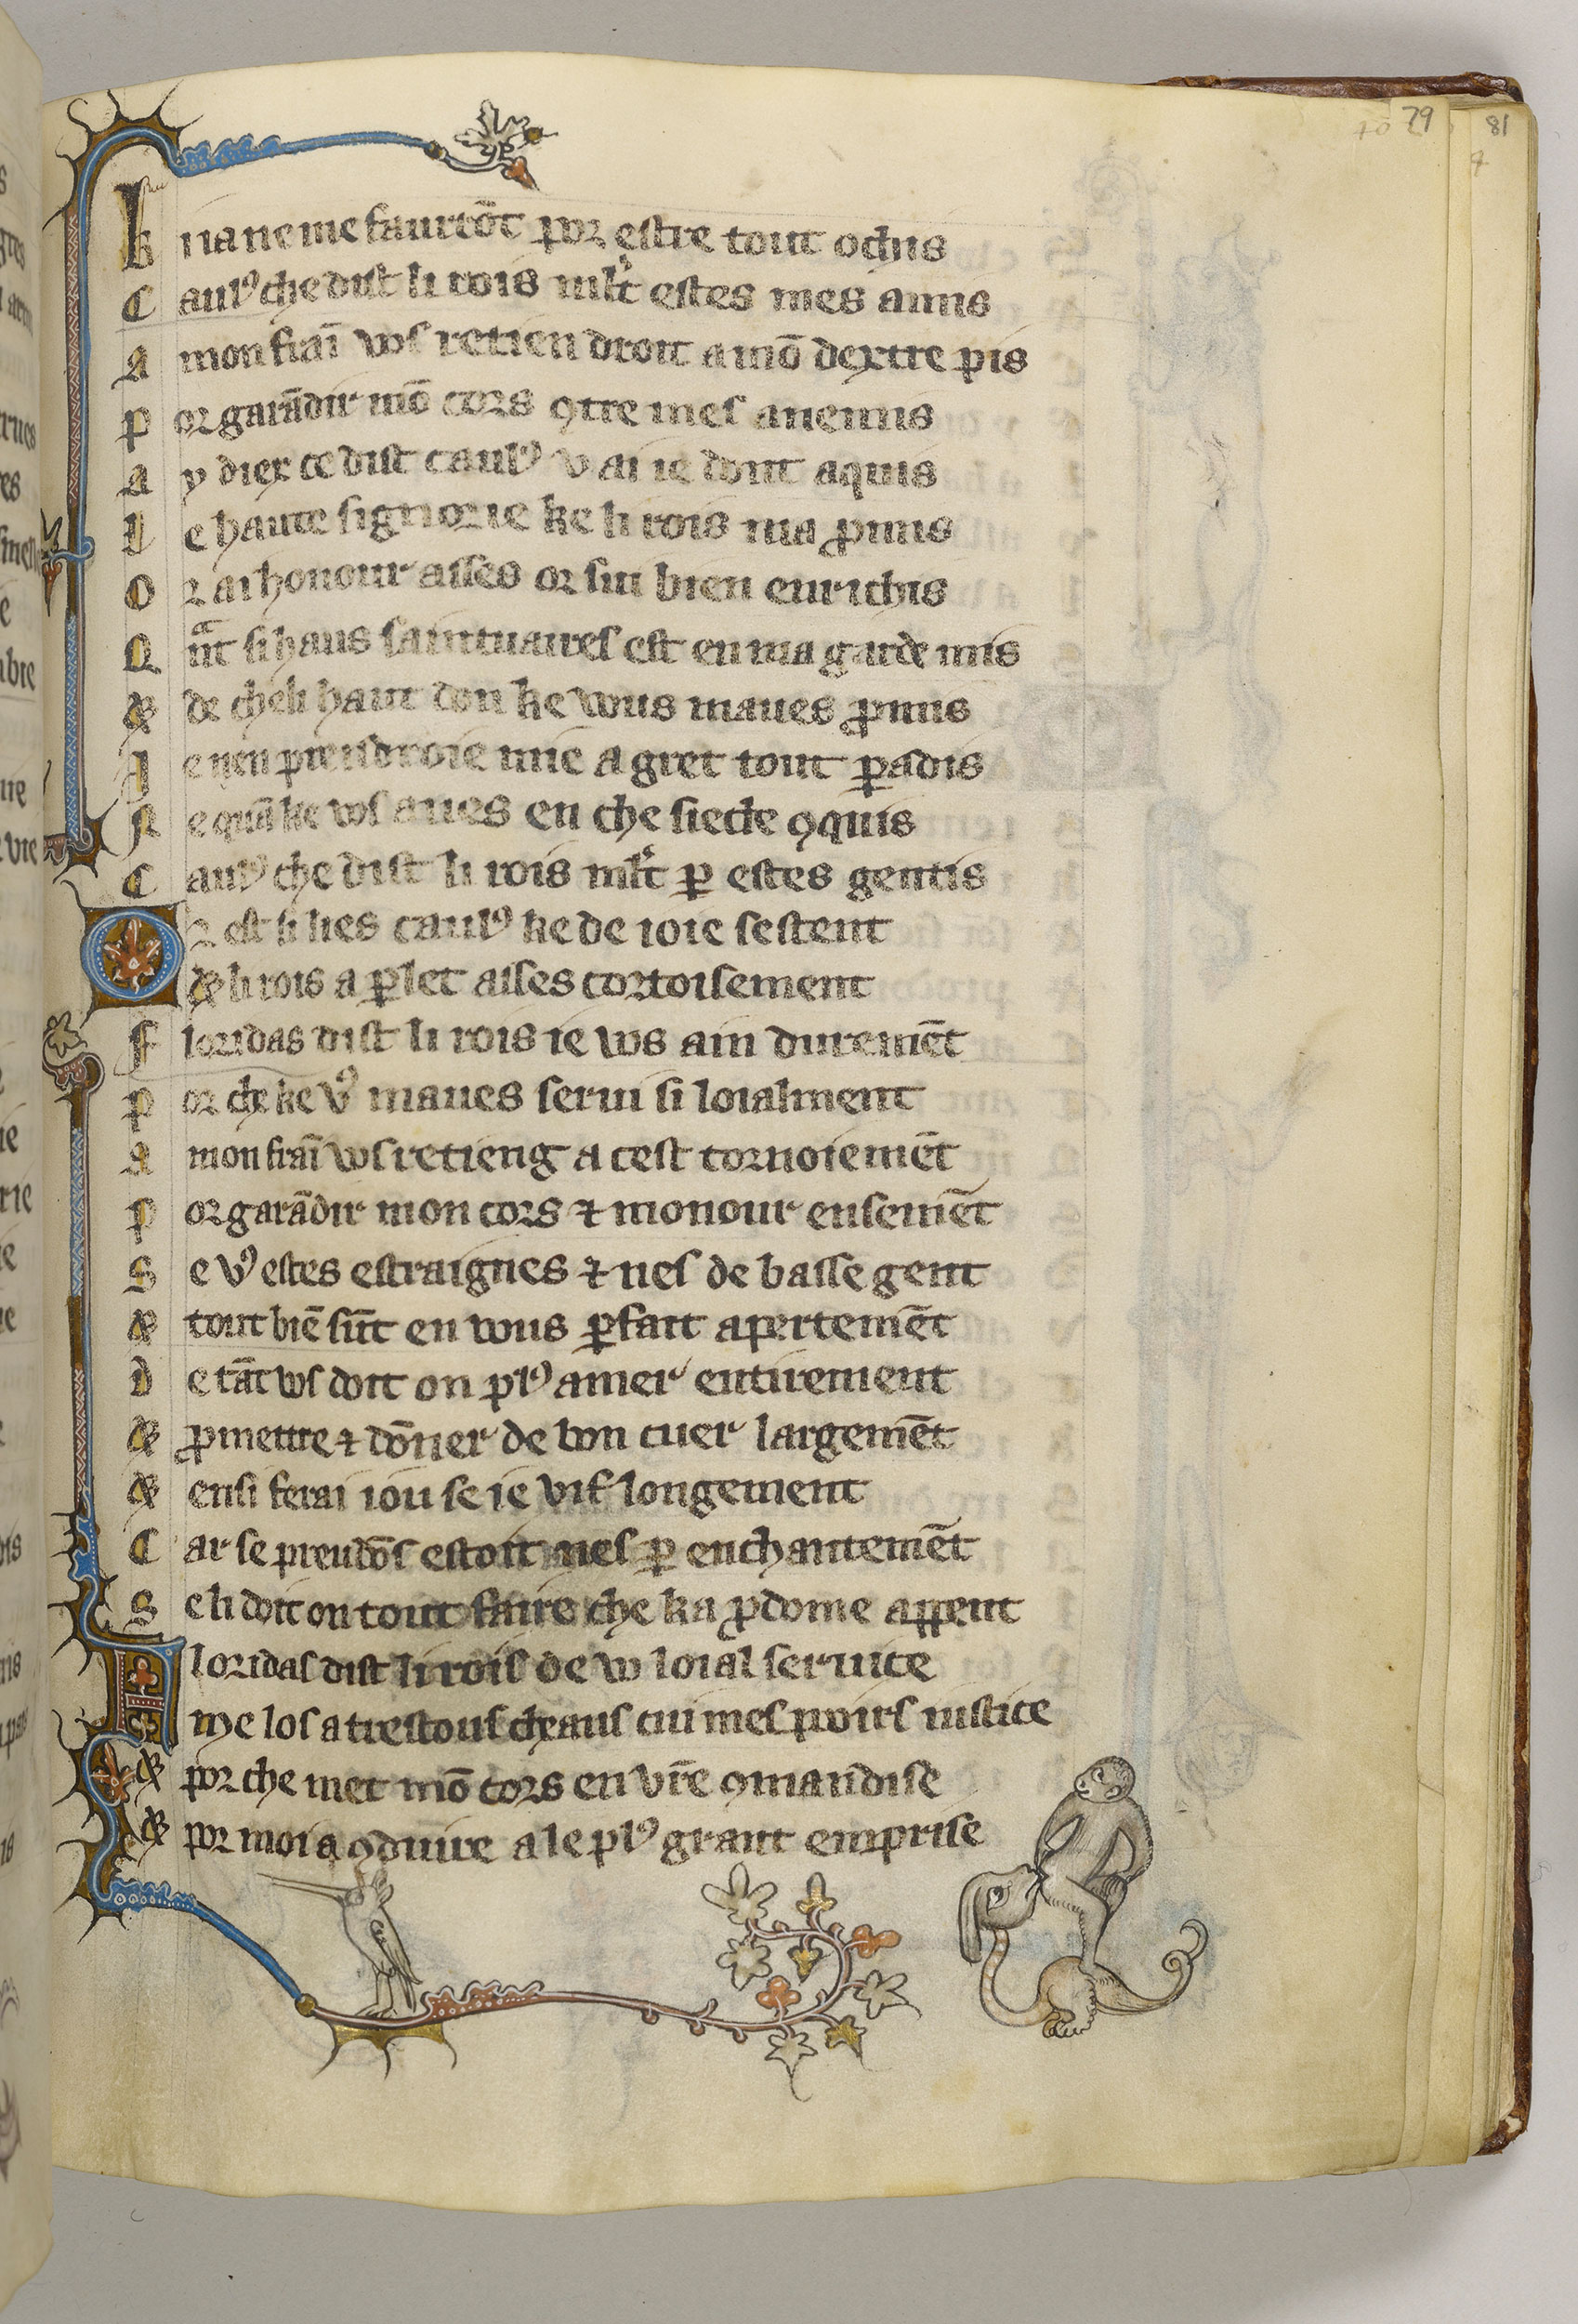 79
81
k ia ne me faurrōt por estre tout ochis
C aulꝰ che dist li rois ml̄t estes mes amis
A mon frai vꝰ retien droit a mō dextre pis
p or garādir mō cors ꝯtre mes anemis
A y diex ce dist caulꝰ v ai ie dont aquis
l e haute signorie ke li rois ma ꝓmis
O r ai honour asses or sui bien enrichis
Q nt si haus saintuaires est en ma garde mis
& de cheli haut don ke vous maues ꝓmis
J e nen prendroie mie a gret tout ꝑadis
N e quā ke vꝰ aues en che siecle ꝯquis
C aulꝰ che dist li rois ml̄t ꝑ estes gentis
O r est si lies caulꝰ ke de ioie sestent
& li rois a ꝑlet asses cortoisement
F loridas dist li rois ie vos aim duremēt
p or che ke vꝰ maues serui si loialment
A mon frāi vos retieng a cest tornoiemēt
p or garādir mon cors ⁊ monour ensemēt
S e vꝰ estes estraignes ⁊ nes de basse gent
& tout biē sūt en vous ꝑfait apertemēt
D e tāt vos doit on plꝰ amer entirement
& ꝓmettre ⁊ dōner de bon cuer largemēt
& ensi ferai iou se ie vif longement
C ar se preudōs estoit nes ꝑ enchantemēt
S e li doit on tout faire che ka ꝓdome apent
F loridas dist li rois de vo loial seruice
me los a trestous cheaus cui mes pooirs iustice
& por che met mō cors en vr̄e ꝯmandise
& por moi a ꝯduire a le plꝰ grant emprise